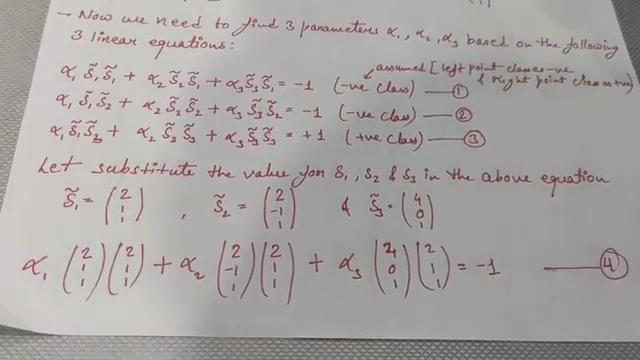 → Now we need to find 3 parameters α₁, α₂, α₃ based on the following
3 linear equations:
assumed [left point classes -ve
& right point class +ve]
α₁ S̃₁S̃₁ + α₂ S̃₂S̃₁ + α₃ S̃₃S̃₁ = -1 (-ve class) — ①
α₁ S̃₁S̃₂ + α₂ S̃₂S̃₂ + α₃ S̃₃S̃₂ = -1 (-ve class) — ②
α₁ S̃₁S̃₃ + α₂ S̃₂S̃₃ + α₃ S̃₃S̃₃ = +1 (+ve class) — ③
Let substitute the value for S₁, S₂ & S₃ in the above equation
S̃₁ = (2 1 1), S̃₂ = (2 -1 1) & S̃₃ = (4 0 1)
α₁ (2 1 1) (2 1 1) + α₂ (2 -1 1) (2 1 1) + α₃ (4 0 1) (2 1 1) = -1 — ④